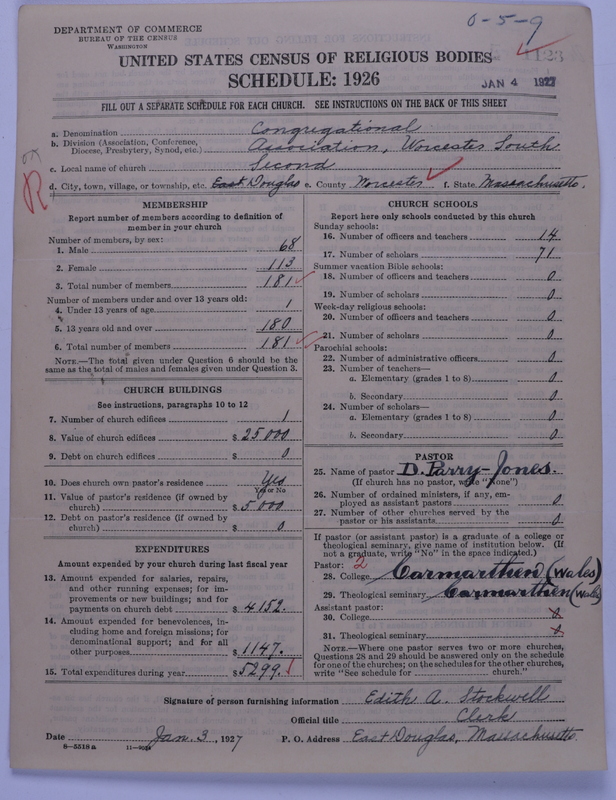 DEPARTMENT OF COMMERCE
BUREAU OF THE CENSUS
WASHINGTON
0-5-9
1123
UNITED STATES CENSUS OF RELIGIOUS BODIES
SCHEDULE: 1926
JAN 4 1927
FILL OUT A SEPARATE SCHEDULE FOR EACH CHURCH. SEE INSTRUCTIONS ON THE BACK OF THIS SHEET
a. Denomination Congregational
b. Division (Association, Conference, Diocese, Presbytery, Synod, etc.) Association, Worcester South
c. Local name of church Second
d. City, town, village, or township, etc. East Douglas e. County Worcester f. State Massachusetts.
R
MEMBERSHIP
Report number of members according to definition of
member in your church
Number of members, by sex:
1. Male 68
2. Female 113
3. Total number of members 181
Number of members under and over 13 years old:
4. Under 13 years of age 1
5. 13 years old and over 180
6. Total number of members 181
NOTE.—The total given under Question 6 should be
same as the total of males and females given under Question 3.
CHURCH BUILDINGS
See instructions, paragraphs 10 to 12
7. Number of church edifices 1
8. Value of church edifices $ 25000
9. Debt on church edifices $ 0
10. Does church own pastor's residence Yes
Yes or No
11. Value of pastor's residence (if owned by
church) $ 5000
12. Debt on pastor's residence (if owned by
church) $ 0
EXPENDITURES
Amount expended by your church during last fiscal year
13. Amount expended for salaries, repairs,
and other running expenses; for im-
provements or new buildings; and for
payments on church debt $ 4152.
14. Amount expended for benevolences, in-
cluding home and foreign missions; for
denominational support; and for all
other purposes $ 1147.
15. Total expenditures during year $ 5299.
CHURCH SCHOOLS
Report here only schools conducted by this church
Sunday schools:
16. Number of officers and teachers 14
17. Number of scholars 71
Summer vacation Bible schools:
18. Number of officers and teachers 0
19. Number of scholars 0
Week-day religious schools:
20. Number of officers and teachers 0
21. Number of scholars 0
Parochial schools:
22. Number of administrative officers 0
23. Number of teachers—
a. Elementary (grades 1 to 8) 0
b. Secondary 0
24. Number of scholars—
a. Elementary (grades 1 to 8) 0
b. Secondary 0
PASTOR
25. Name of pastor D. Parry-Jones.
(If church has no pastor, write "None")
26. Number of ordained ministers, if any, em-
ployed as assistant pastors 0
27. Number of other churches served by the
pastor or his assistants 0
If pastor (or assistant pastor) is a graduate of a college or
theological seminary, give name of institution below. (If
not a graduate, write "No" in the space indicated.)
Pastor: 2
28. College Carmarthen (Wales)
29. Theological seminary Carmarthen (Wales)
Assistant pastor:
30. College 0
31. Theological seminary 0
NOTE.—Where one pastor serves two or more churches,
Questions 28 and 29 should be answered only on the schedule
for one of the churches; on the schedules for the other churches,
write "See schedule for church."
Signature of person furnishing information Edith A. Stockwell
Official title Clerk
Date Jan. 3, 1927 P. O. Address East Douglas, Massachusetts.
8—5518 a